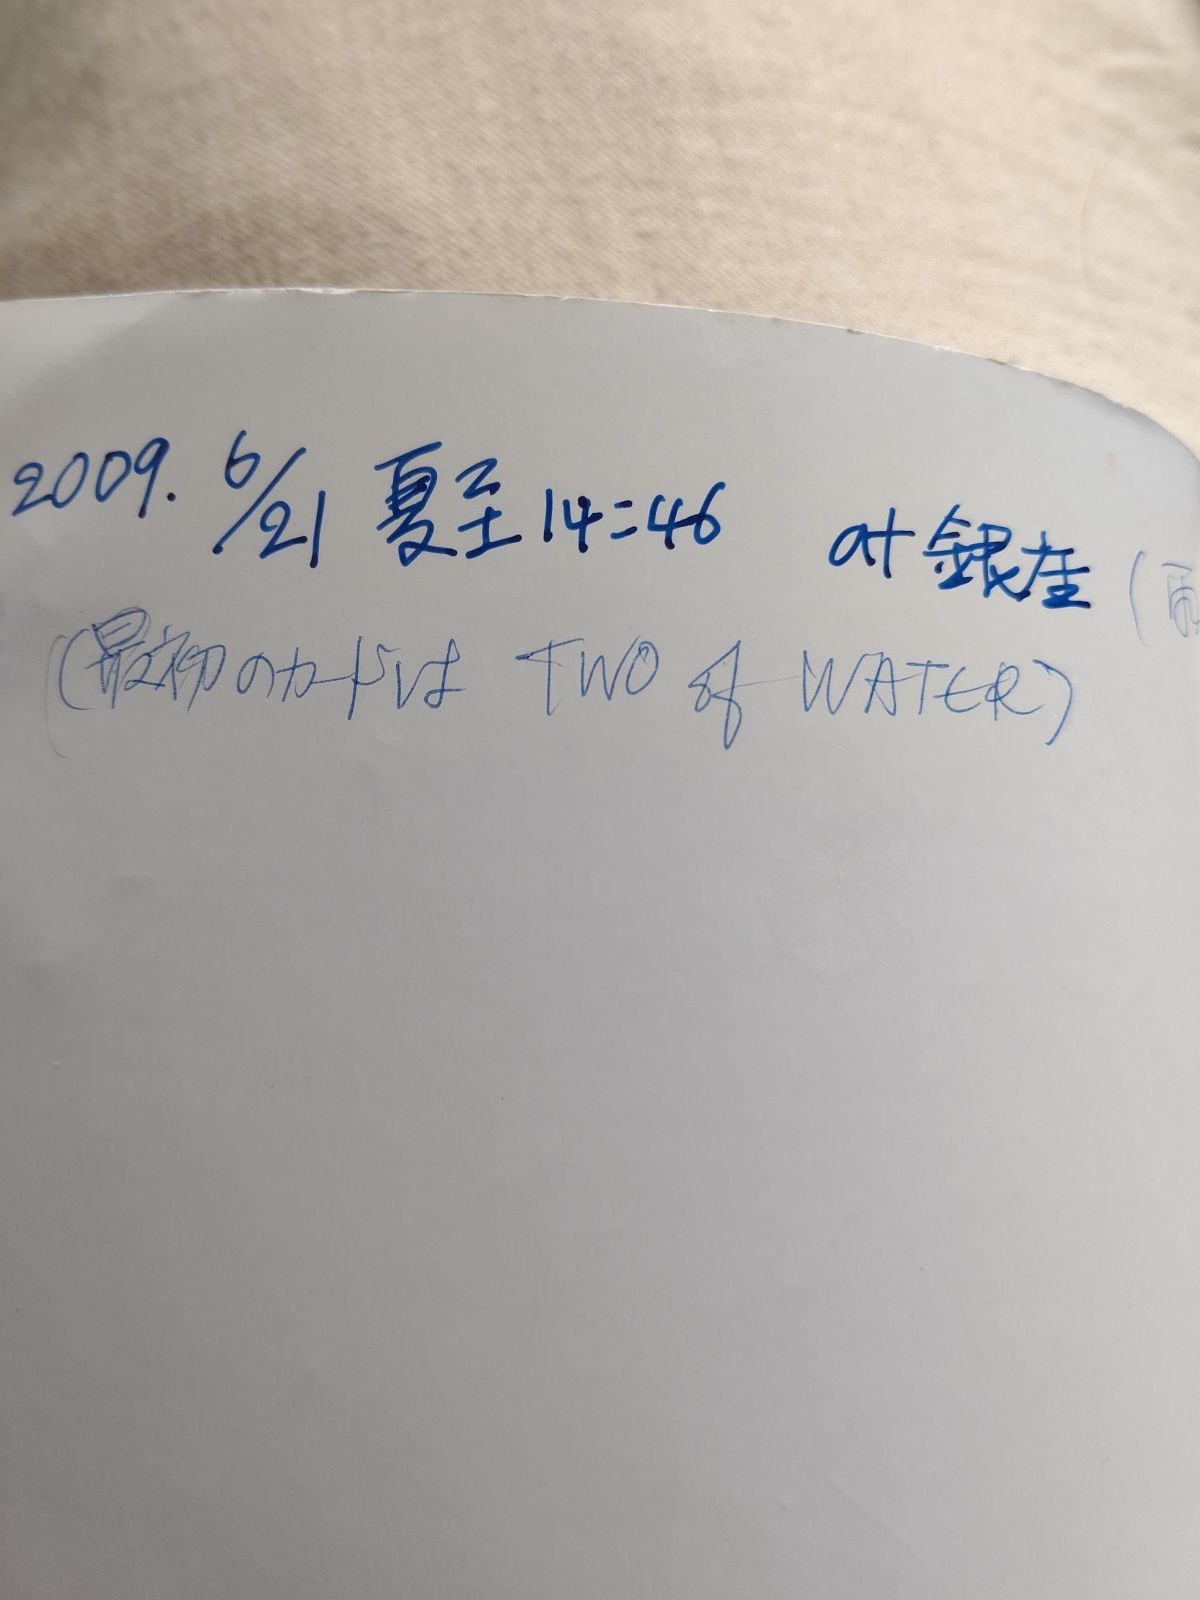 2009. 6/21 夏至 14:46 at 銀座 (
(最初のカードは TWO of WATER)